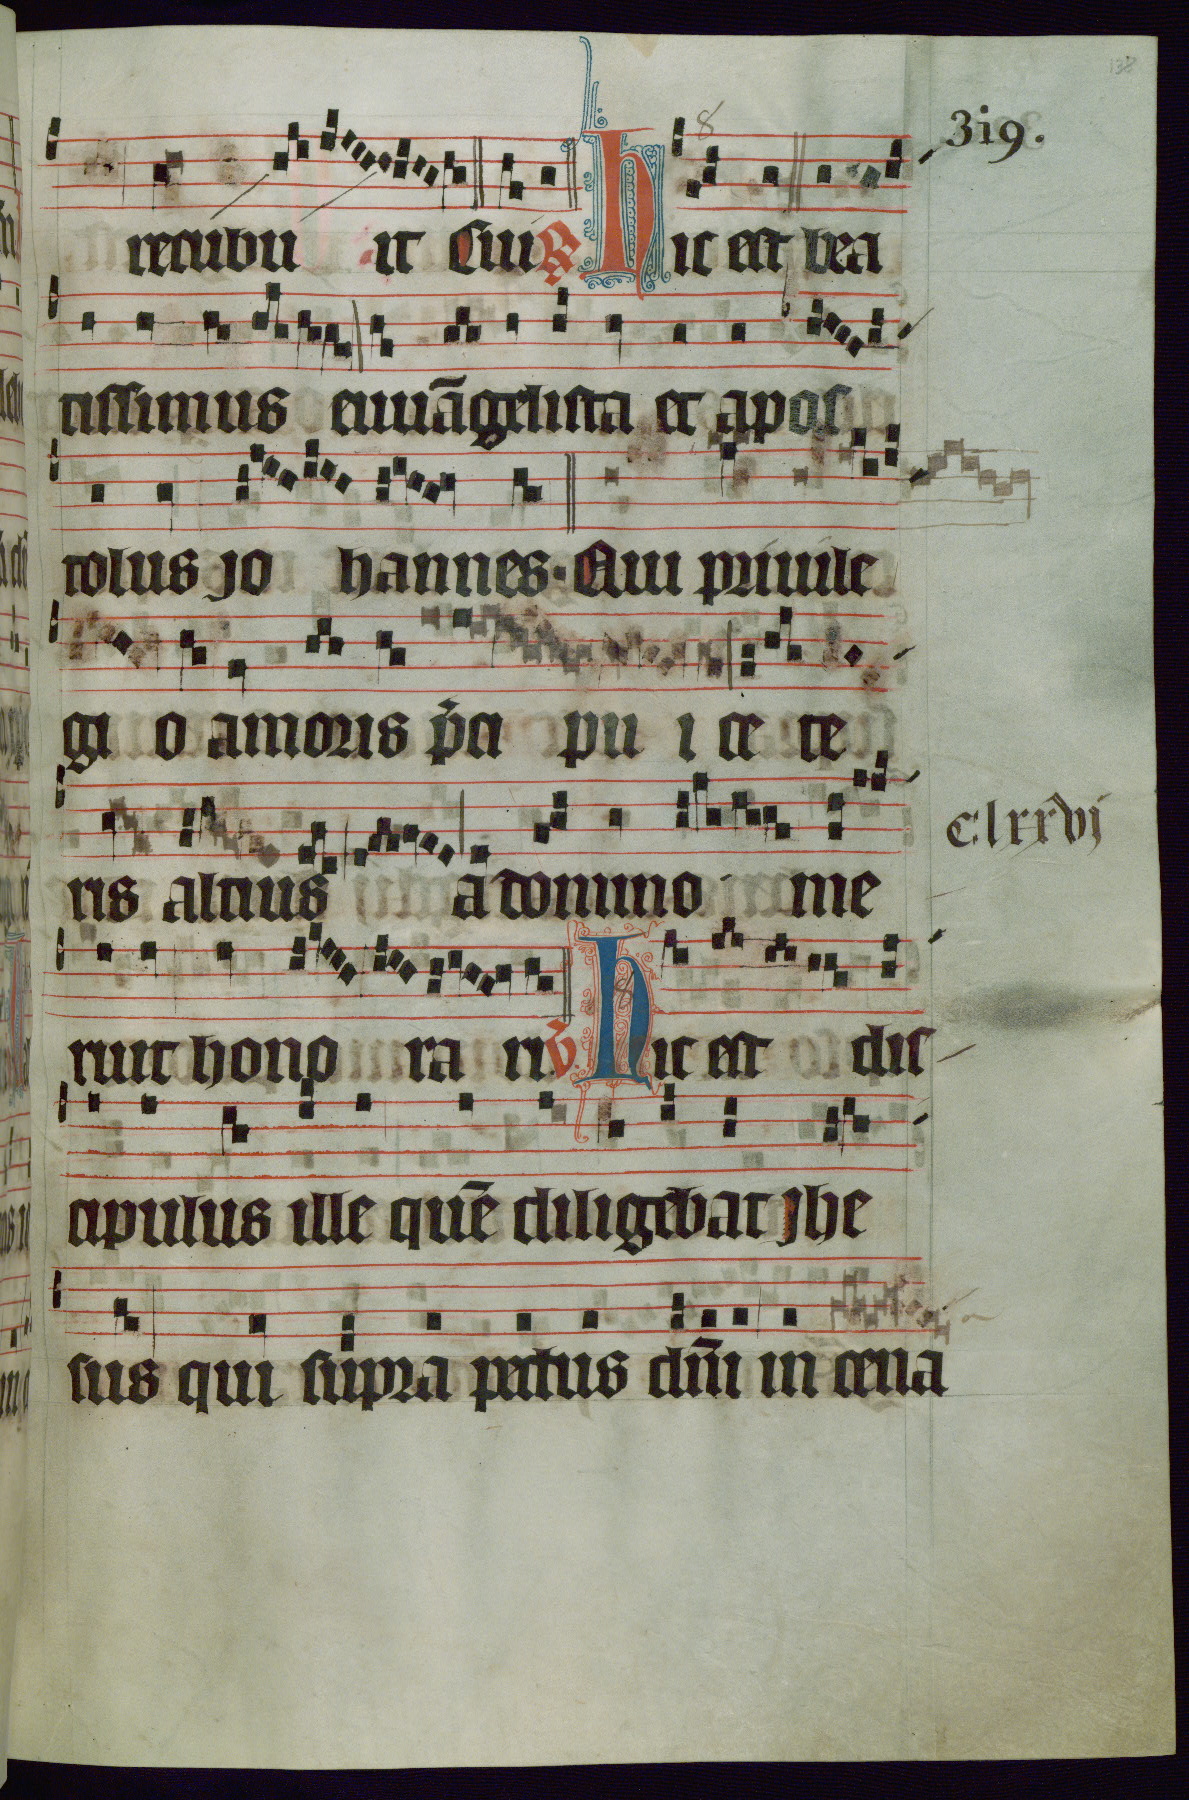 138
319.
8
recubu it Cui ℟ Hic est bea
tissimus euuāgelista et apos
tolus jo hannes. Qui priuile
gi o amoris p̄ci pu i ce te
ris altius a domino me
clxxvj
ruit hono ra ri ℣. Hic est dis
cipulus ille quē diligebat jhe
sus qui supra pectus dn̄i in cena